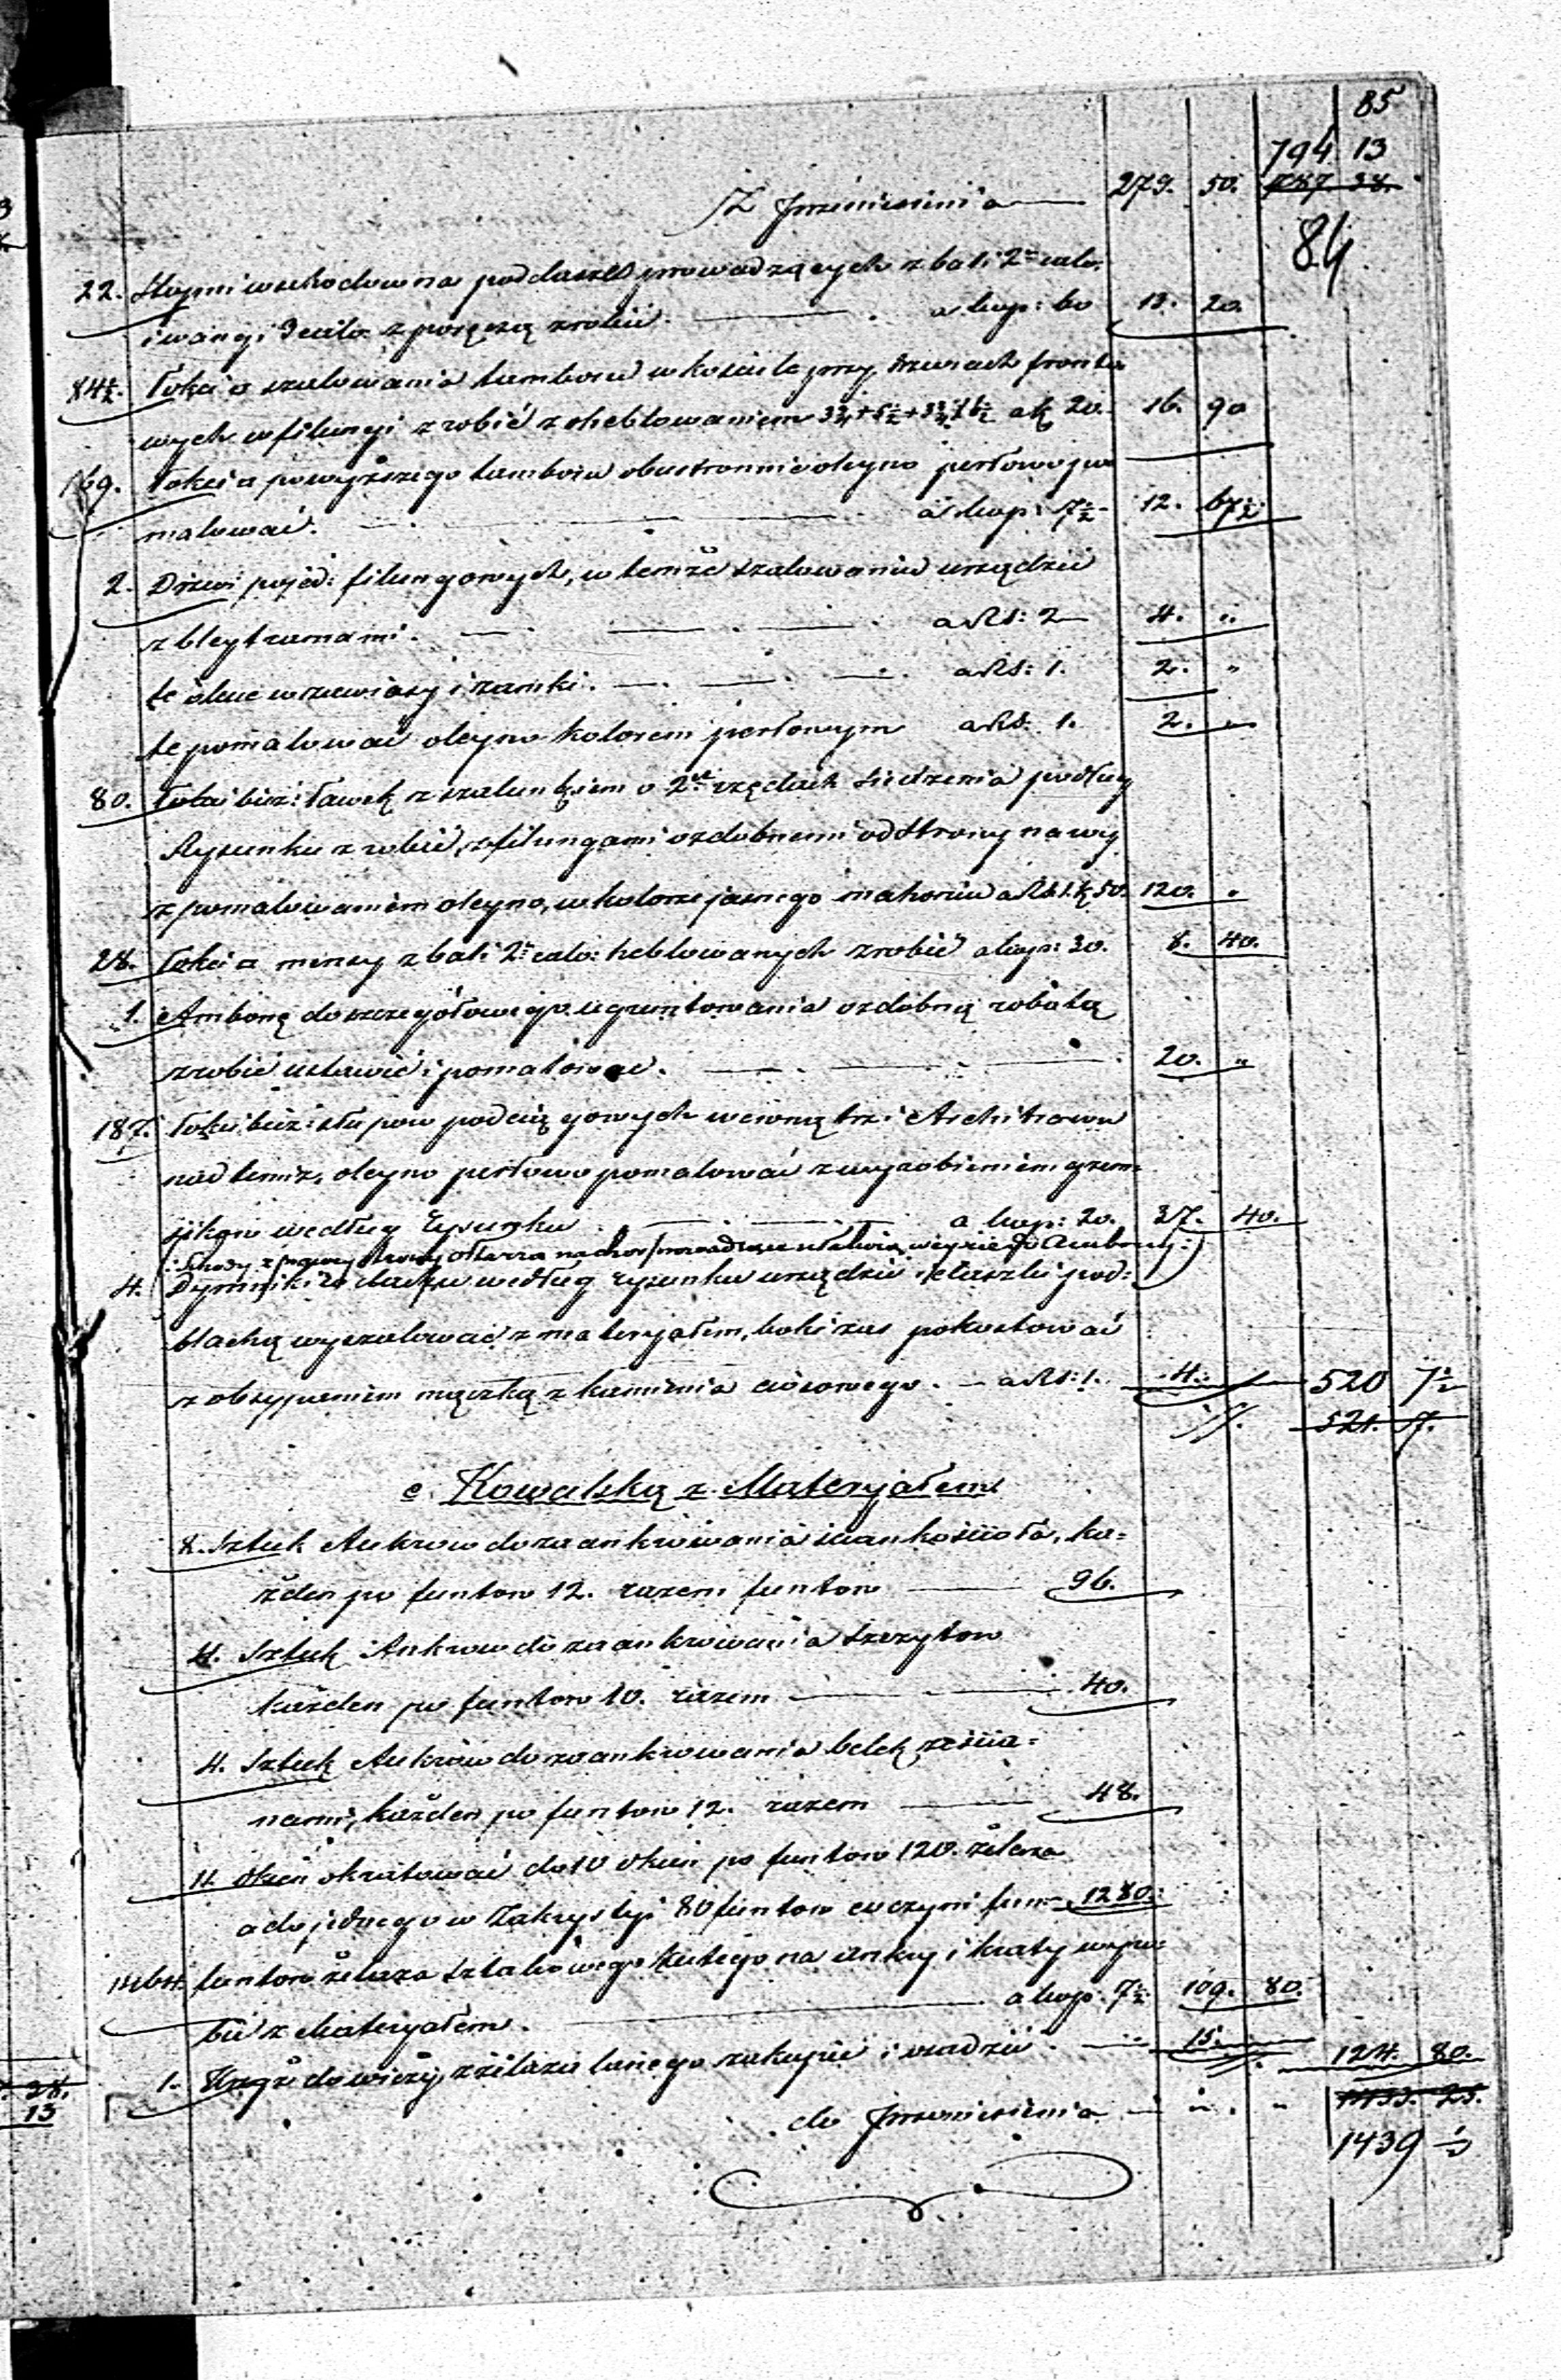 85
794 13
Z przeniesienia — 279. 50. 787 38.
84
22. Stopni wschodow na poddasze prowadzących z bali 2" calo:
i wangi 3 calo. z poręczą zrobić. — a kop: 60 13. 20.
84½. Łokcia szalowania tamboru w kościele przy drzwiach fronto
wych w filungi zrobić z heblowaniem a k 20. 16. 90
169. Łokcia powyższego tamboru obustronnie olejno perłowo po
malować. — a kop: 7½ 12. 67½.
2. Drzwi pojéd: filungowych, w temże szalowaniu urządzić
z bleytramami. — a Rs: 2 — 4. "
te okuc w zawiasy i zamki. — a Rs: 1. 2. "
te pomalować oleyno kolorem perłowym a Rs: 1. 2. "
80. Łokci bież: ławek z szalunkiem o 2ch rzędach siedzenia podług
Rysunku zrobić, z filungami ozdobnemi od strony nawy
z pomalowaniem oleyno, w kolorze jasnego mahoniu a Rs 1. k 50. 120. "
28. Łokcia mensy z bali 2" calo: heblowanych zrobić a kop: 30. 8. 40.
1. Ambonę do szczegółowego ugruntowania ozdobną robotą
zrobić ustawić i pomalować. — 20. "
187. Łokci bież: słupow podciągowych wewnątrz i Architrawu
nad temiż, oleyno perłowo pomalować z wyrobieniem gzem=
sikow według Rysunku. — a kop: 20. 37. 40.
(: Schody z prawej strony ołtarza na chor prowadzące ułatwią wejście do Ambony :)
4. Dymniki w dachu według rysunku urządzić i daszki pod=
blachę wyszalować z materyałem, boki zas pokostować
z obsypaniem mączką z kamienia ciosowego. — a Rs: 1. 4. — 520 7½
521. 7.
e. Kowalską z Materyałem
8. Sztuk Ankrow do zaankrowania scian kościoła, ka=
żden po funtow 12. razem funtow — 96.
4. Sztuk Ankrow do zaankrowania szczytow
każden po funtow 10. razem — 40.
4. Sztuk Ankrów do zaankrowania belek ze ścia=
nami, każden po funtow 12. razem — 48.
11. Okien okratować do 10 okien po funtow 120. żelaza
a do jednego w Zakrystyi 80 funtow co czyni fun — 1280.
1464. funtow żelaza sztabowego kutego na ankry i kraty wyro=
bić z Materyałem. — a kop. 7½ 109. 80.
1. Krzyż do wieży z żelaza lanego zakupić i osadzić. — 15. — 124. 80.
do przeniesienia — " . " 1433. 25.
1439 "
28.
13